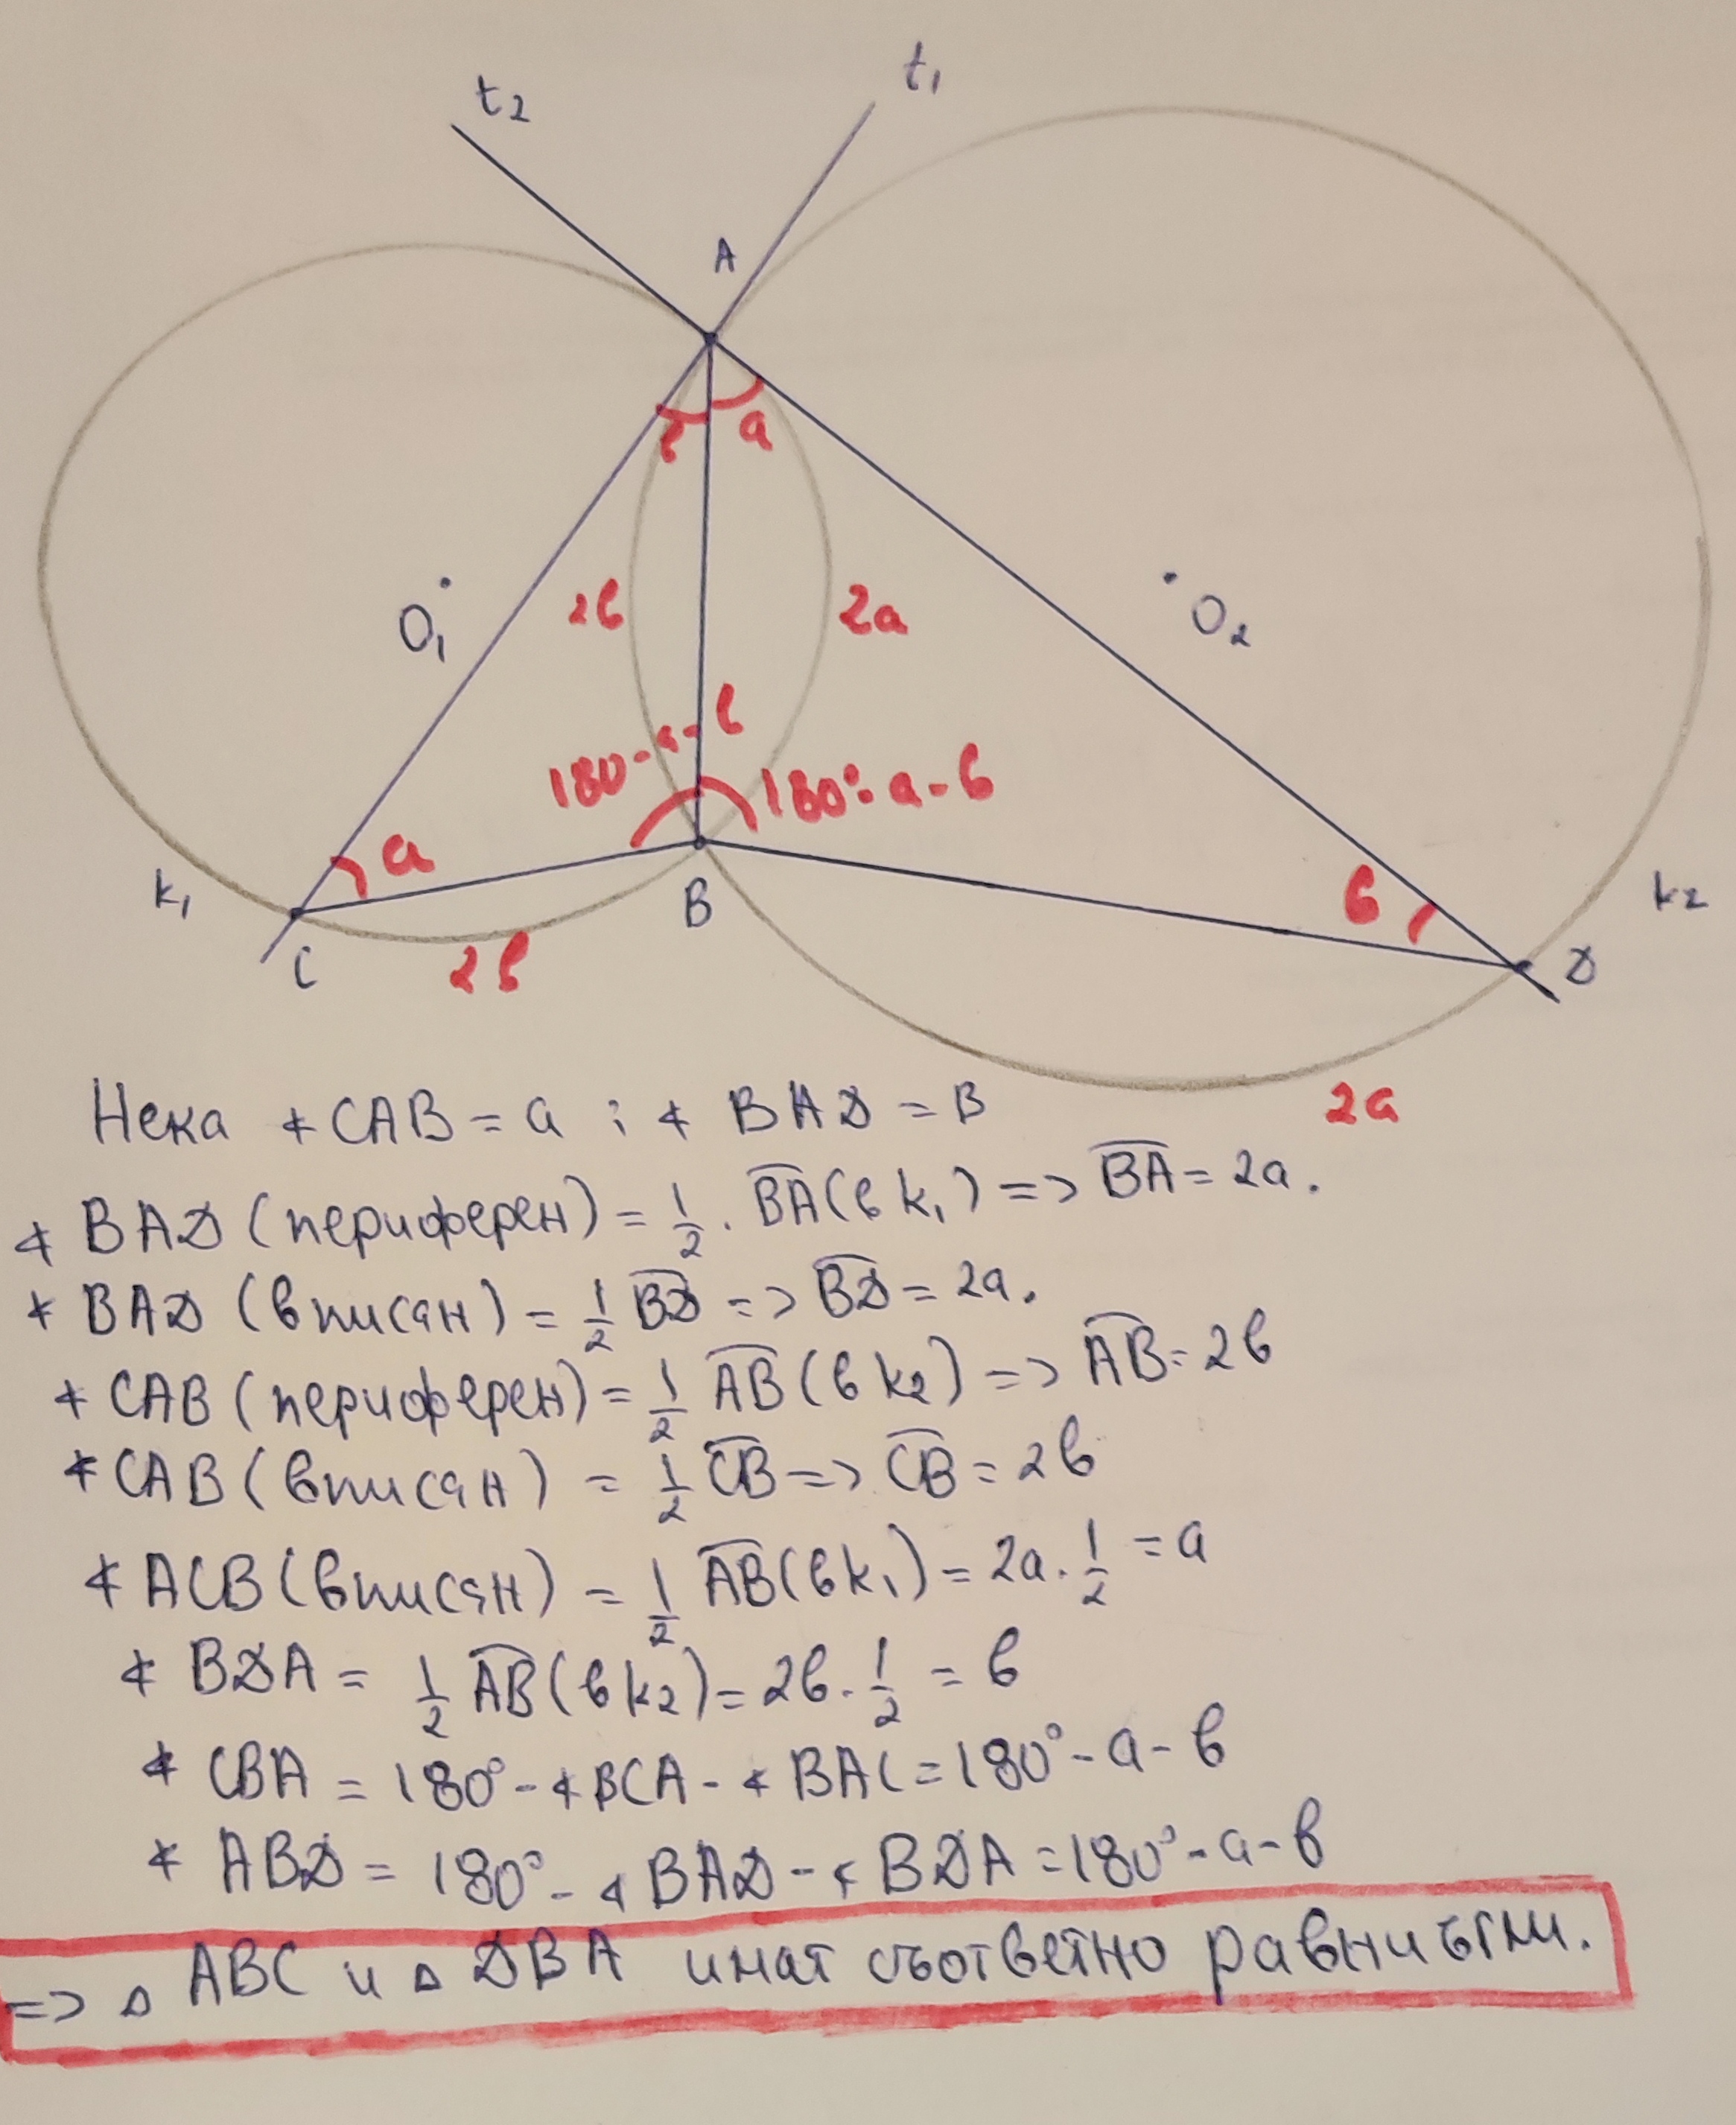 t₂
t₁
A
в a
O₁
2в
2a
O₂
180-a-в
180°-a-в
a
в
k₁
B
k₂
C
2в
D
2a
Нека ∢CAB = a ; ∢ BAD = B
∢ BAD (периферен) = 1/2 . B͡A (в k₁) => B͡A = 2a.
∢ BAD (вписан) = 1/2 B͡D => B͡D = 2a.
∢ CAB (периферен) = 1/2 A͡B (в k₂) => A͡B = 2в
∢ CAB (вписан) = 1/2 C͡B => C͡B = 2в
∢ ACB (вписан) = 1/2 A͡B (в k₁) = 2a . 1/2 = a
∢ BDA = 1/2 A͡B (в k₂) = 2в . 1/2 = в
∢ CBA = 180° - ∢BCA - ∢ BAC = 180° - a - в
∢ ABD = 180° - ∢ BAD - ∢ BDA = 180° - a - в
=> △ ABC и △ DBA имат съответно равни ъгли.